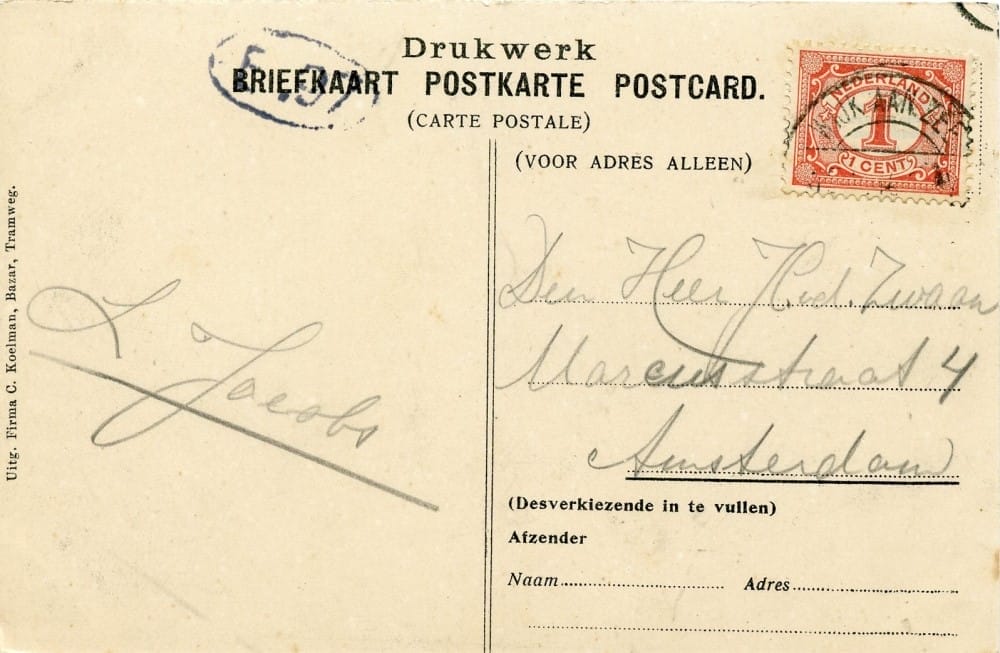 Drukwerk
BRIEFKAART POSTKARTE POSTCARD.
(CARTE POSTALE)
(VOOR ADRES ALLEEN)
NEDERLAND
1
1 CENT
WIJK AAN ZEE
Uitg. Firma C. Koelman, Bazar, Tramweg.
L Jacobs
Den Heer Hd. Zwaan
Marcusstraat 4
Amsterdam
(Desverkiezende in te vullen)
Afzender
Naam
Adres